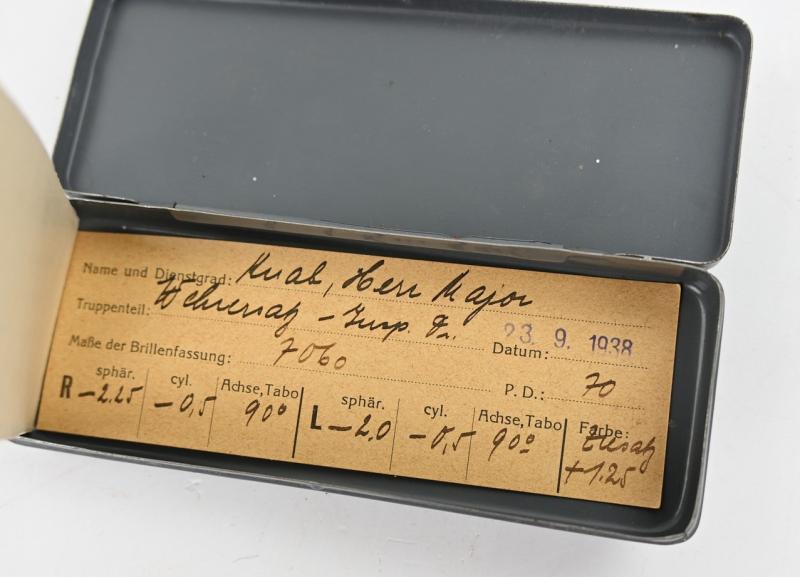 Name und Dienstgrad: Knab, Herr Major
Truppenteil: Wehrersatz-Insp. Dr.
23. 9. 1938
Datum:
Maße der Brillenfassung: 7060
P. D.: 70
R sphär. -2.25 cyl. -0,5 Achse,Tabo 90° L sphär. -2,0 cyl. -0,5 Achse,Tabo 90° Farbe: Zusatz
+1.25